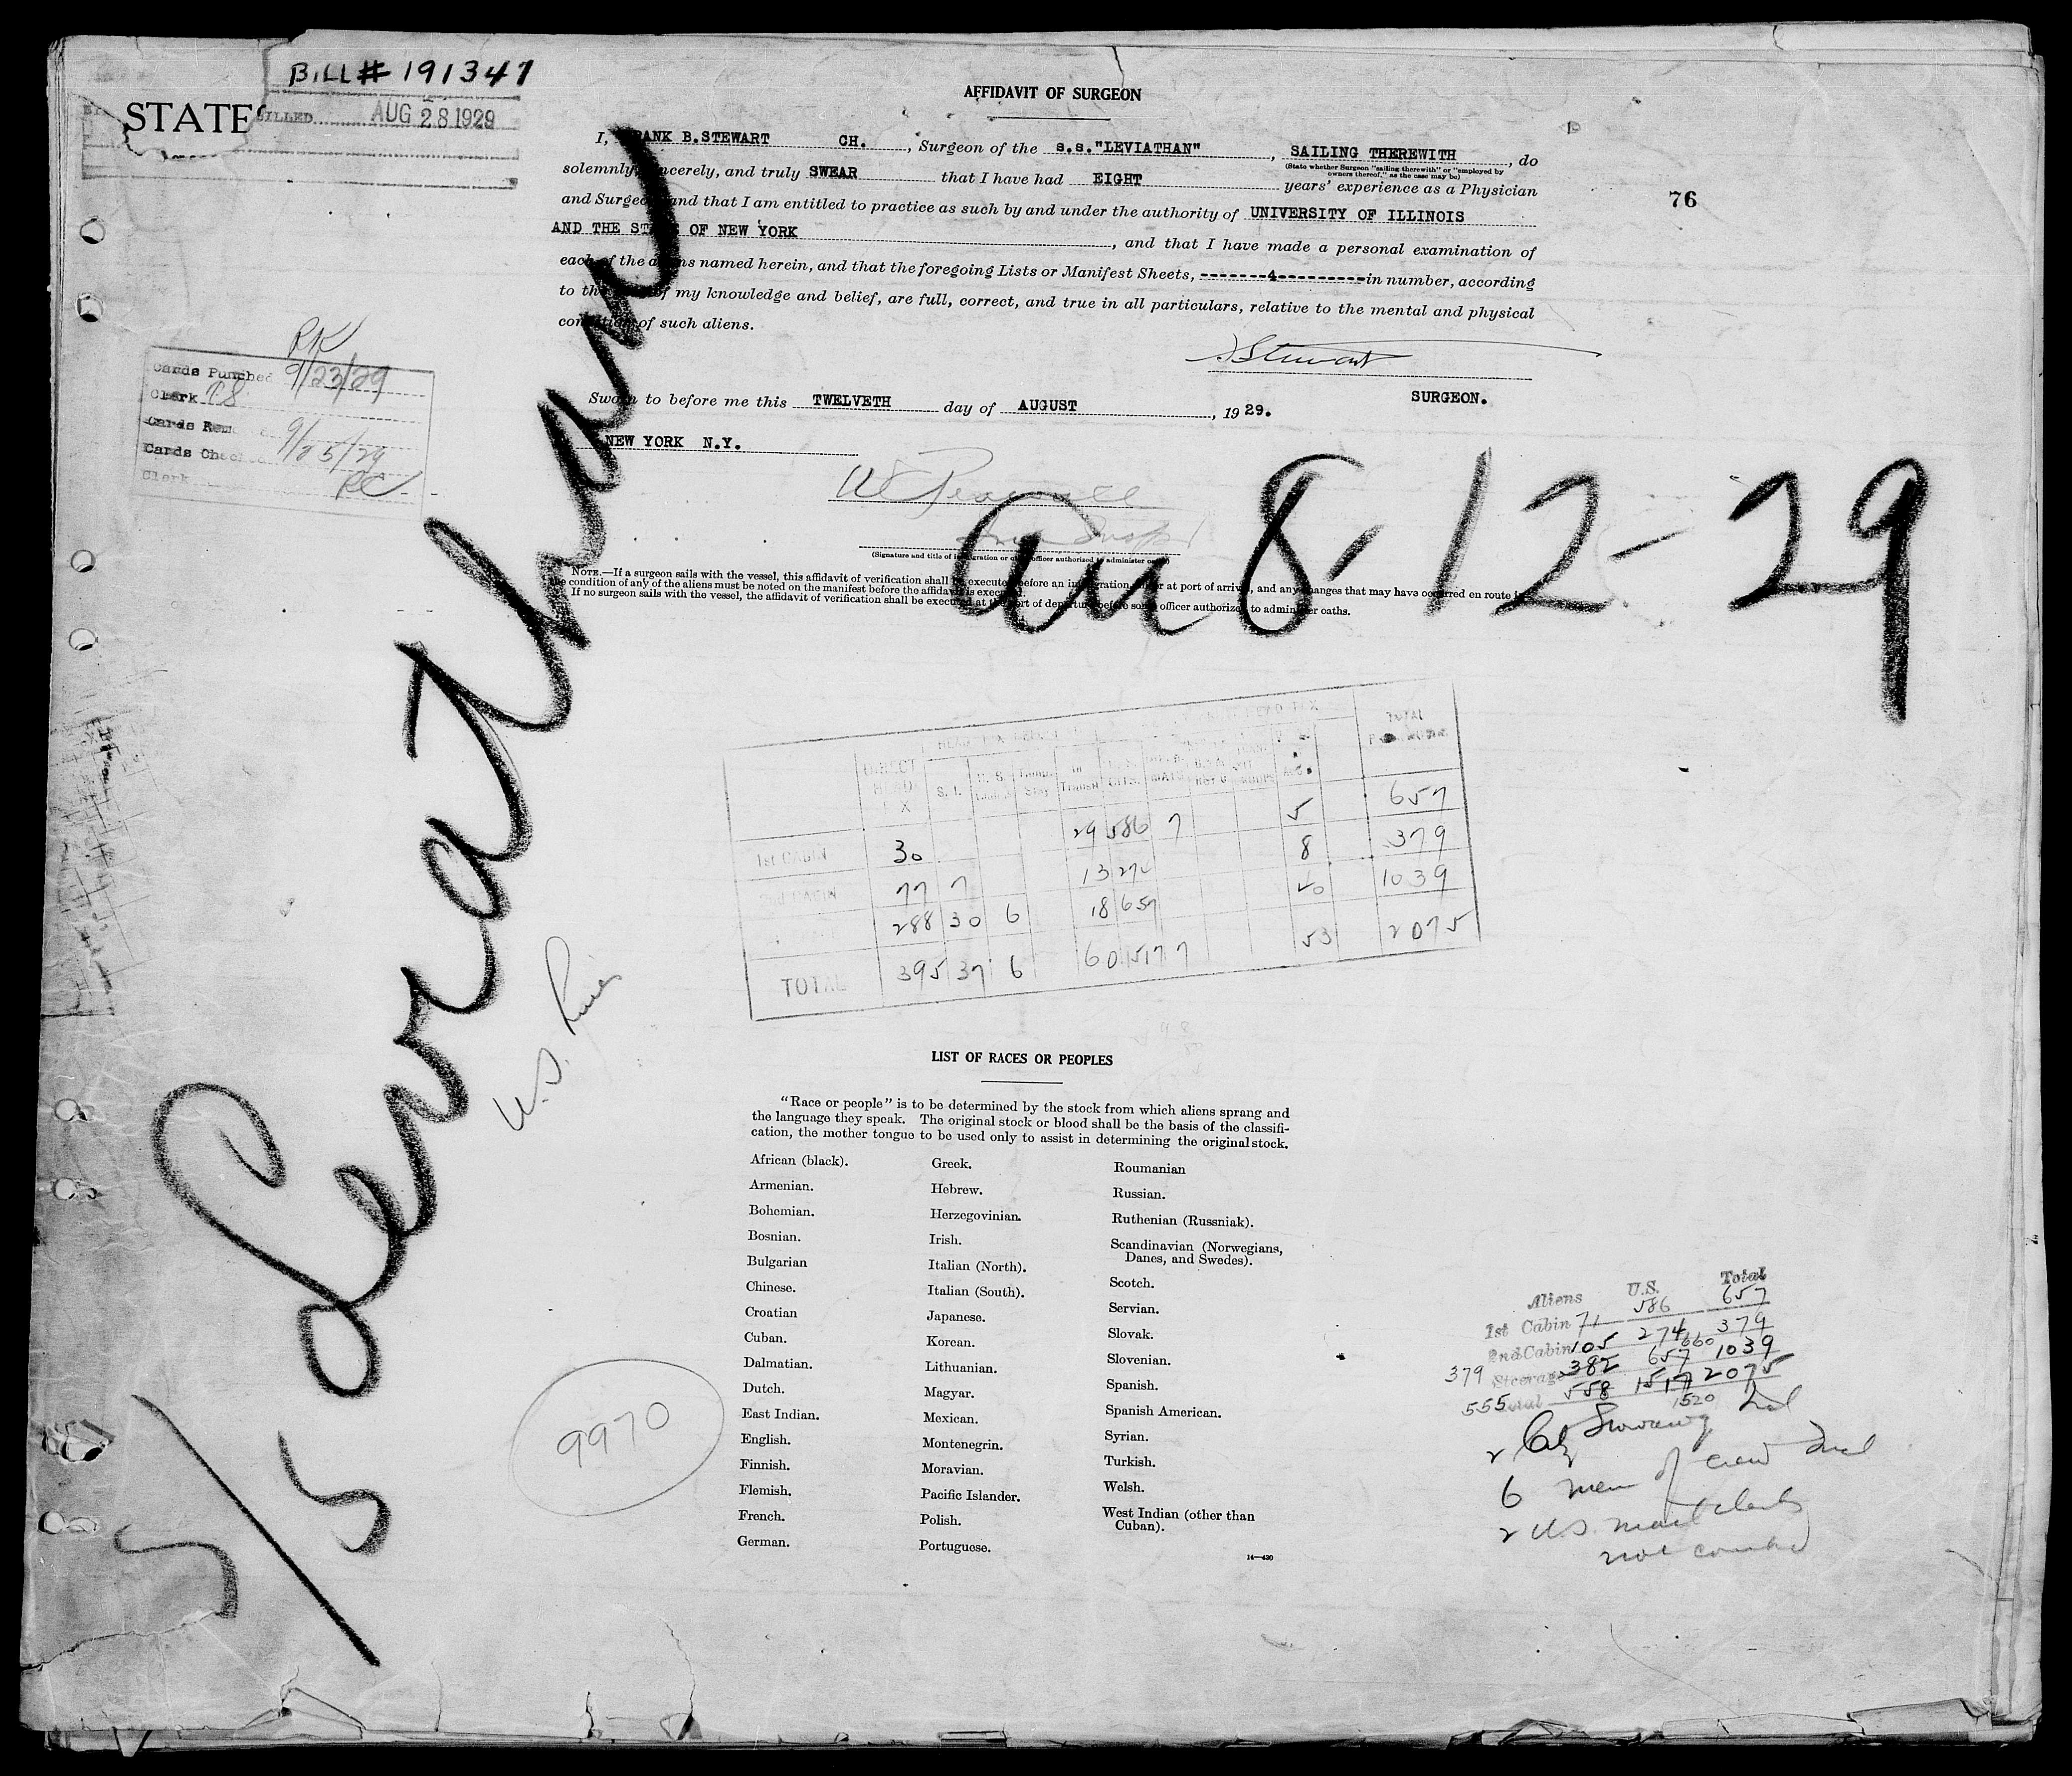 BILL # 191347
STATE
BILLED AUG 28 1929
AFFIDAVIT OF SURGEON
I, FRANK B.STEWART CH. , Surgeon of the s.s."LEVIATHAN" , SAILING THEREWITH , do
(State whether Surgeon "sailing therewith" or "employed by
owners thereof," as the case may be)
solemnly, sincerely, and truly SWEAR that I have had EIGHT years' experience as a Physician
76
and Surgeon and that I am entitled to practice as such by and under the authority of UNIVERSITY OF ILLINOIS
AND THE STATE OF NEW YORK , and that I have made a personal examination of
each of the aliens named herein, and that the foregoing Lists or Manifest Sheets, -------4--------- in number, according
to the best of my knowledge and belief, are full, correct, and true in all particulars, relative to the mental and physical
condition of such aliens.
Stewart
SURGEON.
RK
Cards Punched 9/23/29
Clerk
Cards Checked 9/25/29
Clerk RC
Sworn to before me this TWELVETH day of AUGUST , 19 29.
NEW YORK N.Y.
(Signature and title of immigration or other officer authorized to administer oaths)
NOTE.—If a surgeon sails with the vessel, this affidavit of verification shall be executed before an immigration officer at port of arrival, and any changes that may have occurred en route in
the condition of any of the aliens must be noted on the manifest before the affidavit is executed.
If no surgeon sails with the vessel, the affidavit of verification shall be executed at the port of departure before some officer authorized to administer oaths.
S/S Leviathan
au 8-12-29
U.S. Lines
DIRECT HEAD TAX S. I. U. S. In Transit U.S. CITS. TOTAL
1st CABIN 30 29 586 7 5 657
2nd CABIN 77 7 13 274 8 379
288 30 6 18 657 40 1039
TOTAL 395 37 6 60 1517 7 53 2075
LIST OF RACES OR PEOPLES
"Race or people" is to be determined by the stock from which aliens sprang and
the language they speak. The original stock or blood shall be the basis of the classifi-
cation, the mother tongue to be used only to assist in determining the original stock.
African (black).
Armenian.
Bohemian.
Bosnian.
Bulgarian
Chinese.
Croatian
Cuban.
Dalmatian.
Dutch.
East Indian.
English.
Finnish.
Flemish.
French.
German.
Greek.
Hebrew.
Herzegovinian.
Irish.
Italian (North).
Italian (South).
Japanese.
Korean.
Lithuanian.
Magyar.
Mexican.
Montenegrin.
Moravian.
Pacific Islander.
Polish.
Portuguese.
Roumanian
Russian.
Ruthenian (Russniak).
Scandinavian (Norwegians,
Danes, and Swedes).
Scotch.
Servian.
Slovak.
Slovenian.
Spanish.
Spanish American.
Syrian.
Turkish.
Welsh.
West Indian (other than
Cuban).
14—430
9970
Aliens U.S. Total
1st Cabin 71 586 657
2nd Cabin 105 274 379
660
379 Steerage 382 657 1039
555 Total 558 1517 2075
1520
6 men of crew incl
2 US mail clerks
not counted